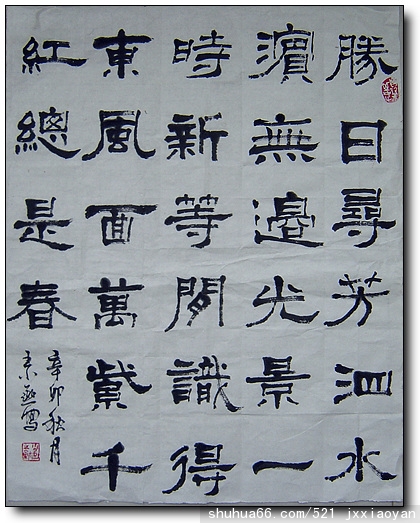 勝日尋芳泗水
濱無邊光景一
時新等間識得
東風面萬紫千
紅總是春
辛卯秋月
寫
shuhua66.com/521 jxxiaoyan